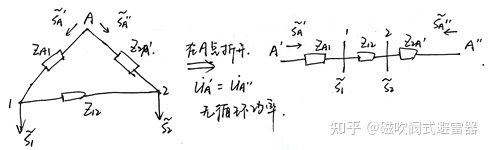 S̃A' A S̃A''
ZA1 Z2A'
1 Z12 2
S̃1 S̃2
在A点拆开.
U̇A' = U̇A''
无循环功率.
A' S̃A' ZA1 1 Z12 2 Z2A' S̃A'' A''
S̃1 S̃2
知乎 @磁吹阀式避雷器